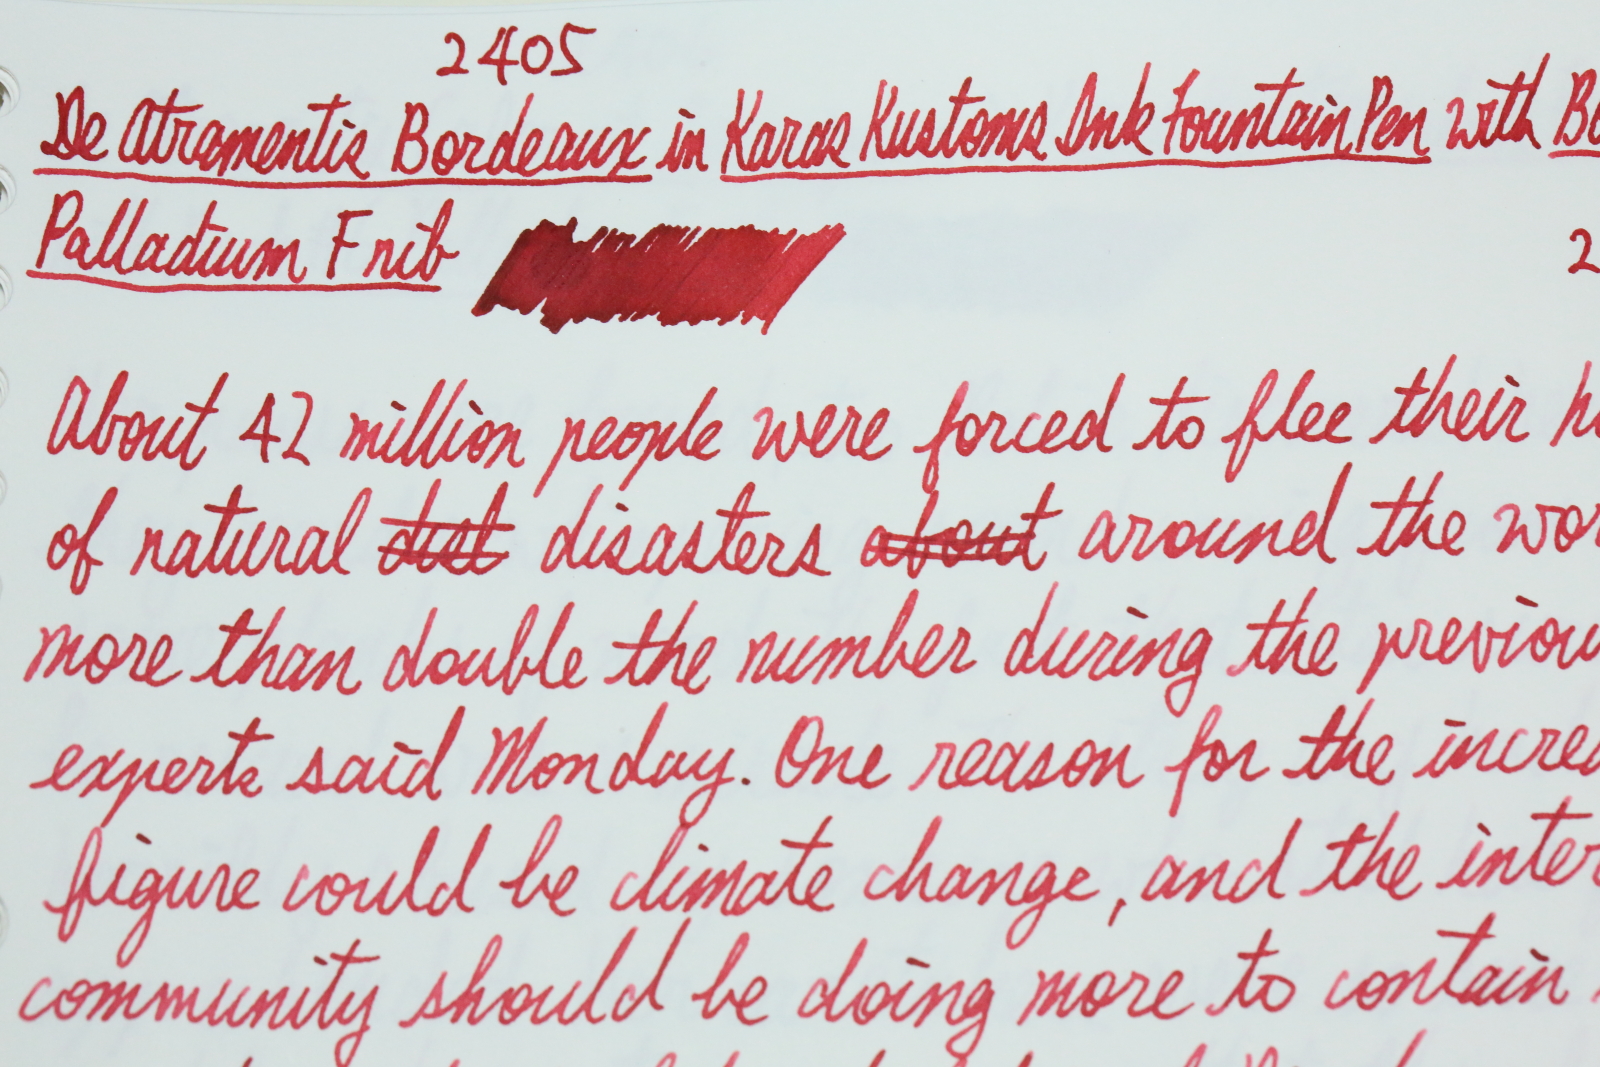 2405
De Atramentis Bordeaux in Karas Kustoms Ink Fountain Pen with
Palladium F nib
2
About 42 million people were forced to flee their
of natural dist disasters about around the
more than double the number during the
experts said Monday. One reason for the
figure could be climate change, and the
community should be doing more to contain